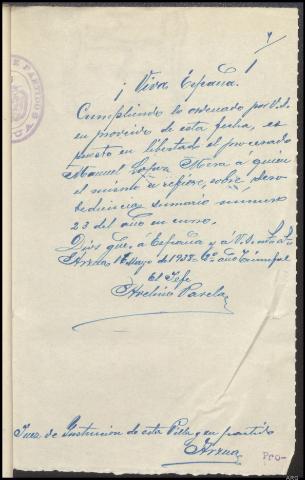 ¡ Viva España !
Cumpliendo lo ordenado por Vd.
en proveido de esta fecha, es
puesto en libertad el procesado
Manuel Lopez Mira a quien
el mismo se refiere, sobre deso-
bediencia sumario numero
23 del año en curso.
Dios gue. a España y a V. S. m. a.
Arzua 12 Mayo de 1938 - 2º año Triunfal
El Jefe
Avelino Varela
Juez de Instrucion de esta Villa y su partido
Arzua
Pro-